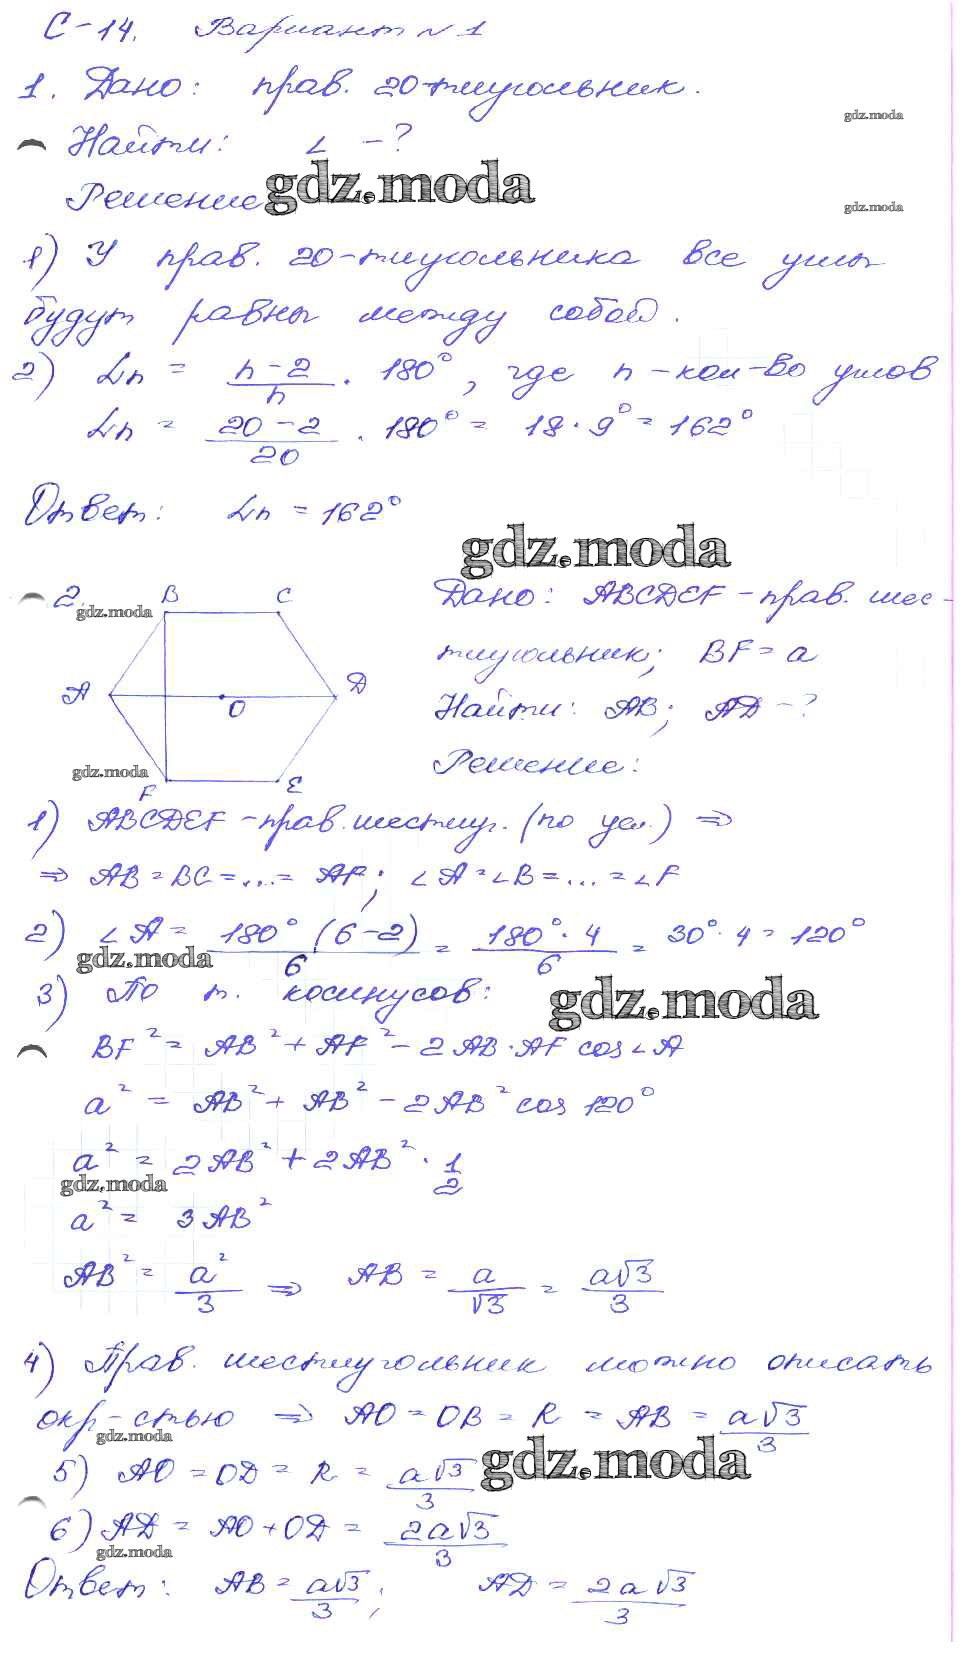 С-14. Вариант №1
1. Дано: прав. 20-тиугольник.
gdz.moda
Найти: ∠ -?
Решение
gdz.moda
gdz.moda
1) У прав. 20-тиугольника все углы
будут равны между собой.
2) ∠n = (n-2)/n · 180°, где n-кол-во углов
∠n = (20-2)/20 · 180° = 18·9° = 162°
Ответ: ∠n = 162°
gdz.moda
2.
gdz.moda
B C
A O D
F E
gdz.moda
Дано: ABCDEF - прав. шес-
тиугольник; BF = a
Найти: AB; AD -?
Решение:
1) ABCDEF - прав. шестиуг. (по усл.) ⇒
⇒ AB = BC = ... = AF; ∠A = ∠B = ... = ∠F
2) ∠A = 180°(6-2)/6 = 180°·4/6 = 30°·4 = 120°
gdz.moda
3) По т. косинусов:
gdz.moda
BF² = AB² + AF² - 2AB·AF cos∠A
a² = AB² + AB² - 2AB² cos 120°
a² = 2AB² + 2AB² · 1/2
gdz.moda
a² = 3AB²
AB² = a²/3 ⇒ AB = a/√3 = a√3/3
4) Прав. шестиугольник можно описать
окр-стью ⇒ AO = OB = R = AB = a√3/3
gdz.moda
5) AO = OD = R = a√3/3
gdz.moda
6) AD = AO + OD = 2a√3/3
gdz.moda
Ответ: AB = a√3/3; AD = 2a√3/3